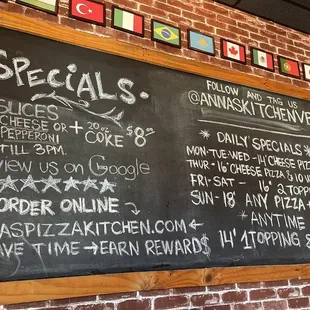 SPECIALS
SLICES
CHEESE OR
PEPPERONI
+ 20oz COKE $8
TILL 3PM.
REVIEW US ON Google
ORDER ONLINE
ASPIZZAKITCHEN.COM
SAVE TIME → EARN REWARDS
FOLLOW AND TAG US
@ANNASKITCHENVE
DAILY SPECIALS
MON-TUE-WED - 14" CHEESE PIZZ
THUR - 16" CHEESE PIZZA & 10
FRI-SAT - 16" 2 TOPPING
SUN - 18" ANY PIZZA +
ANYTIME
14" 1 TOPPING &